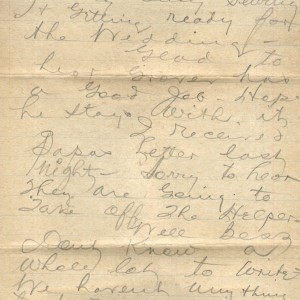 Sewing
& Getting ready for
the Wedding -
Glad to
hear Grover has
a Good Job - Hope
he stays with it
I Received
Papas Letter last
night - Sorry to hear
They are Going to
Take off The Helpers
Well Dear
Dont Know a
whole lot to write
We havent any thing